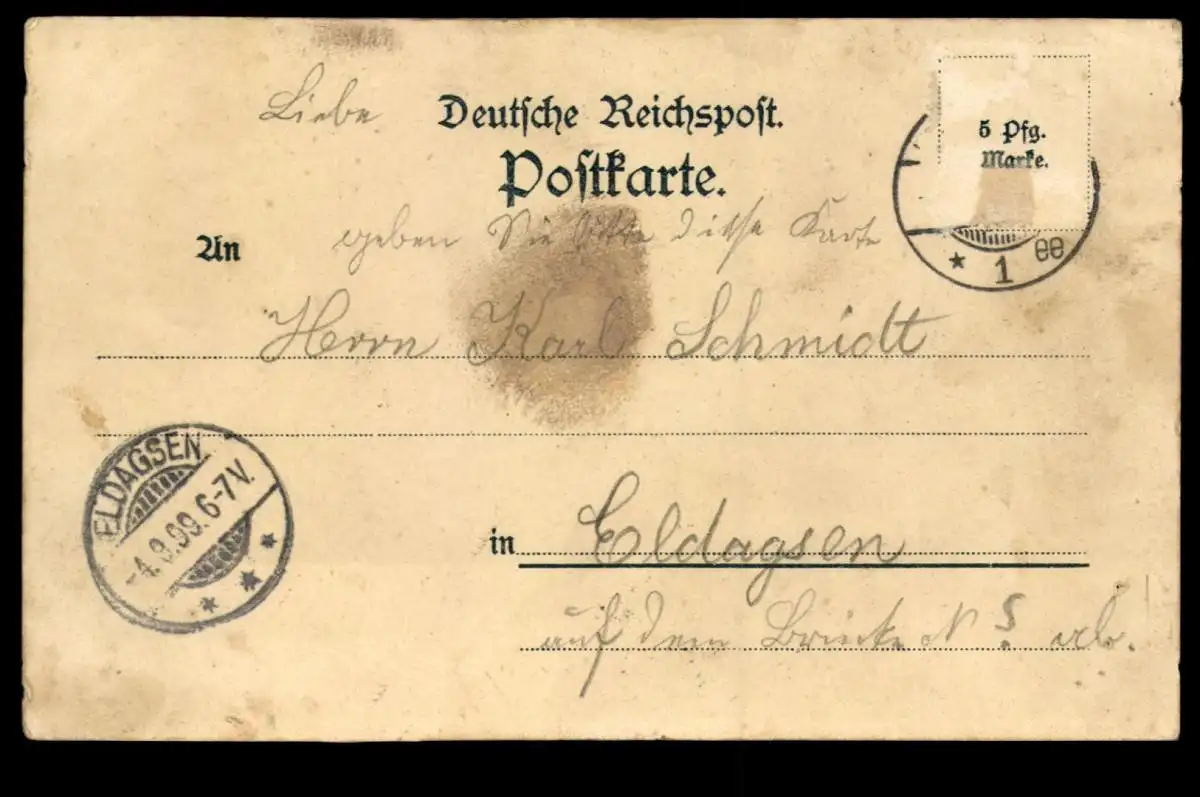 Liebe
Deutsche Reichspost.
Postkarte.
5 Pfg.
Marke.
An
geben Sie bitte diese Karte
Herrn Karl Schmidt
* 1 ee
ELDAGSEN
-4.9.99.6-7V.
* * *
in Eldagsen
auf dem Brinke N 5 ab.